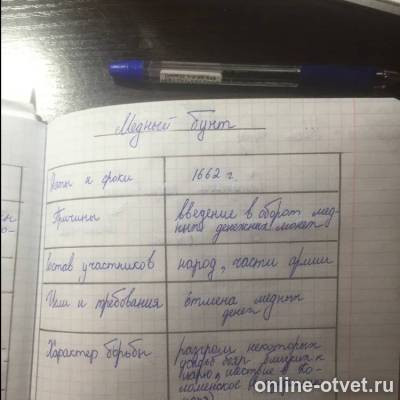 Медный бунт
Даты и сроки
1662 г.
Причины
введение в оборот мед-
ных денежных монет
Состав участников
народ, части армии
Цели и требования
отмена медных
денег
Характер борьбы
разгром некоторых
усадьб бояр
шествие в Ко-
ломенское
online-otvet.ru